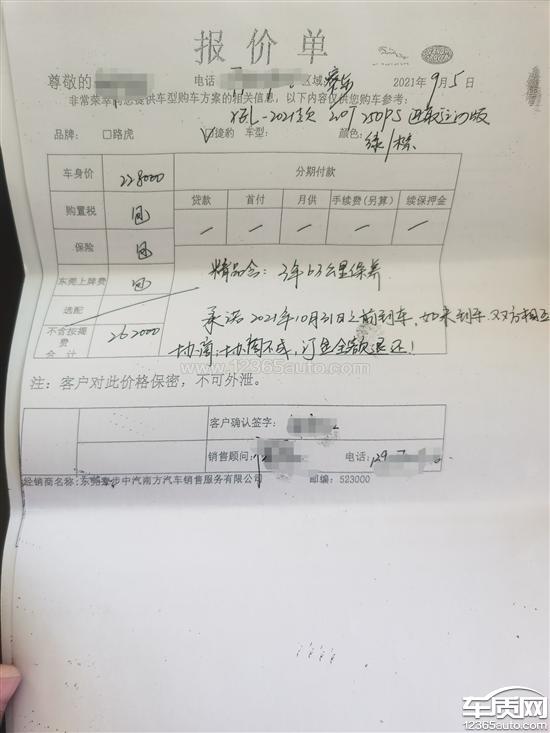 报价单
尊敬的 电话 区域 2021年9月5日
非常荣幸向您提供车型购车方案的相关信息，以下内容仅供您购车参考：
XEL-2021款 2.0T 250PS 进取运动版
品牌： □路虎 ☑捷豹 车型： 颜色： 绿/棕
车身价 228000 分期付款
购置税 包 贷款 首付 月供 手续费(另算) 续保押金
保险 包 / / / / /
东莞上牌费 包 精品含：3年6.3公里保养
选配 承诺2021年10月31日之前到车，如未到车双方相互
不含按揭费合计 262000 协商，协商不成，订金全额退还！
www.12365auto.com
注：客户对此价格保密，不可外泄。
客户确认签字：
销售顾问： 电话：
经销商名称：东莞 中汽南方汽车销售服务有限公司 邮编：523000
车质网
www.12365auto.com